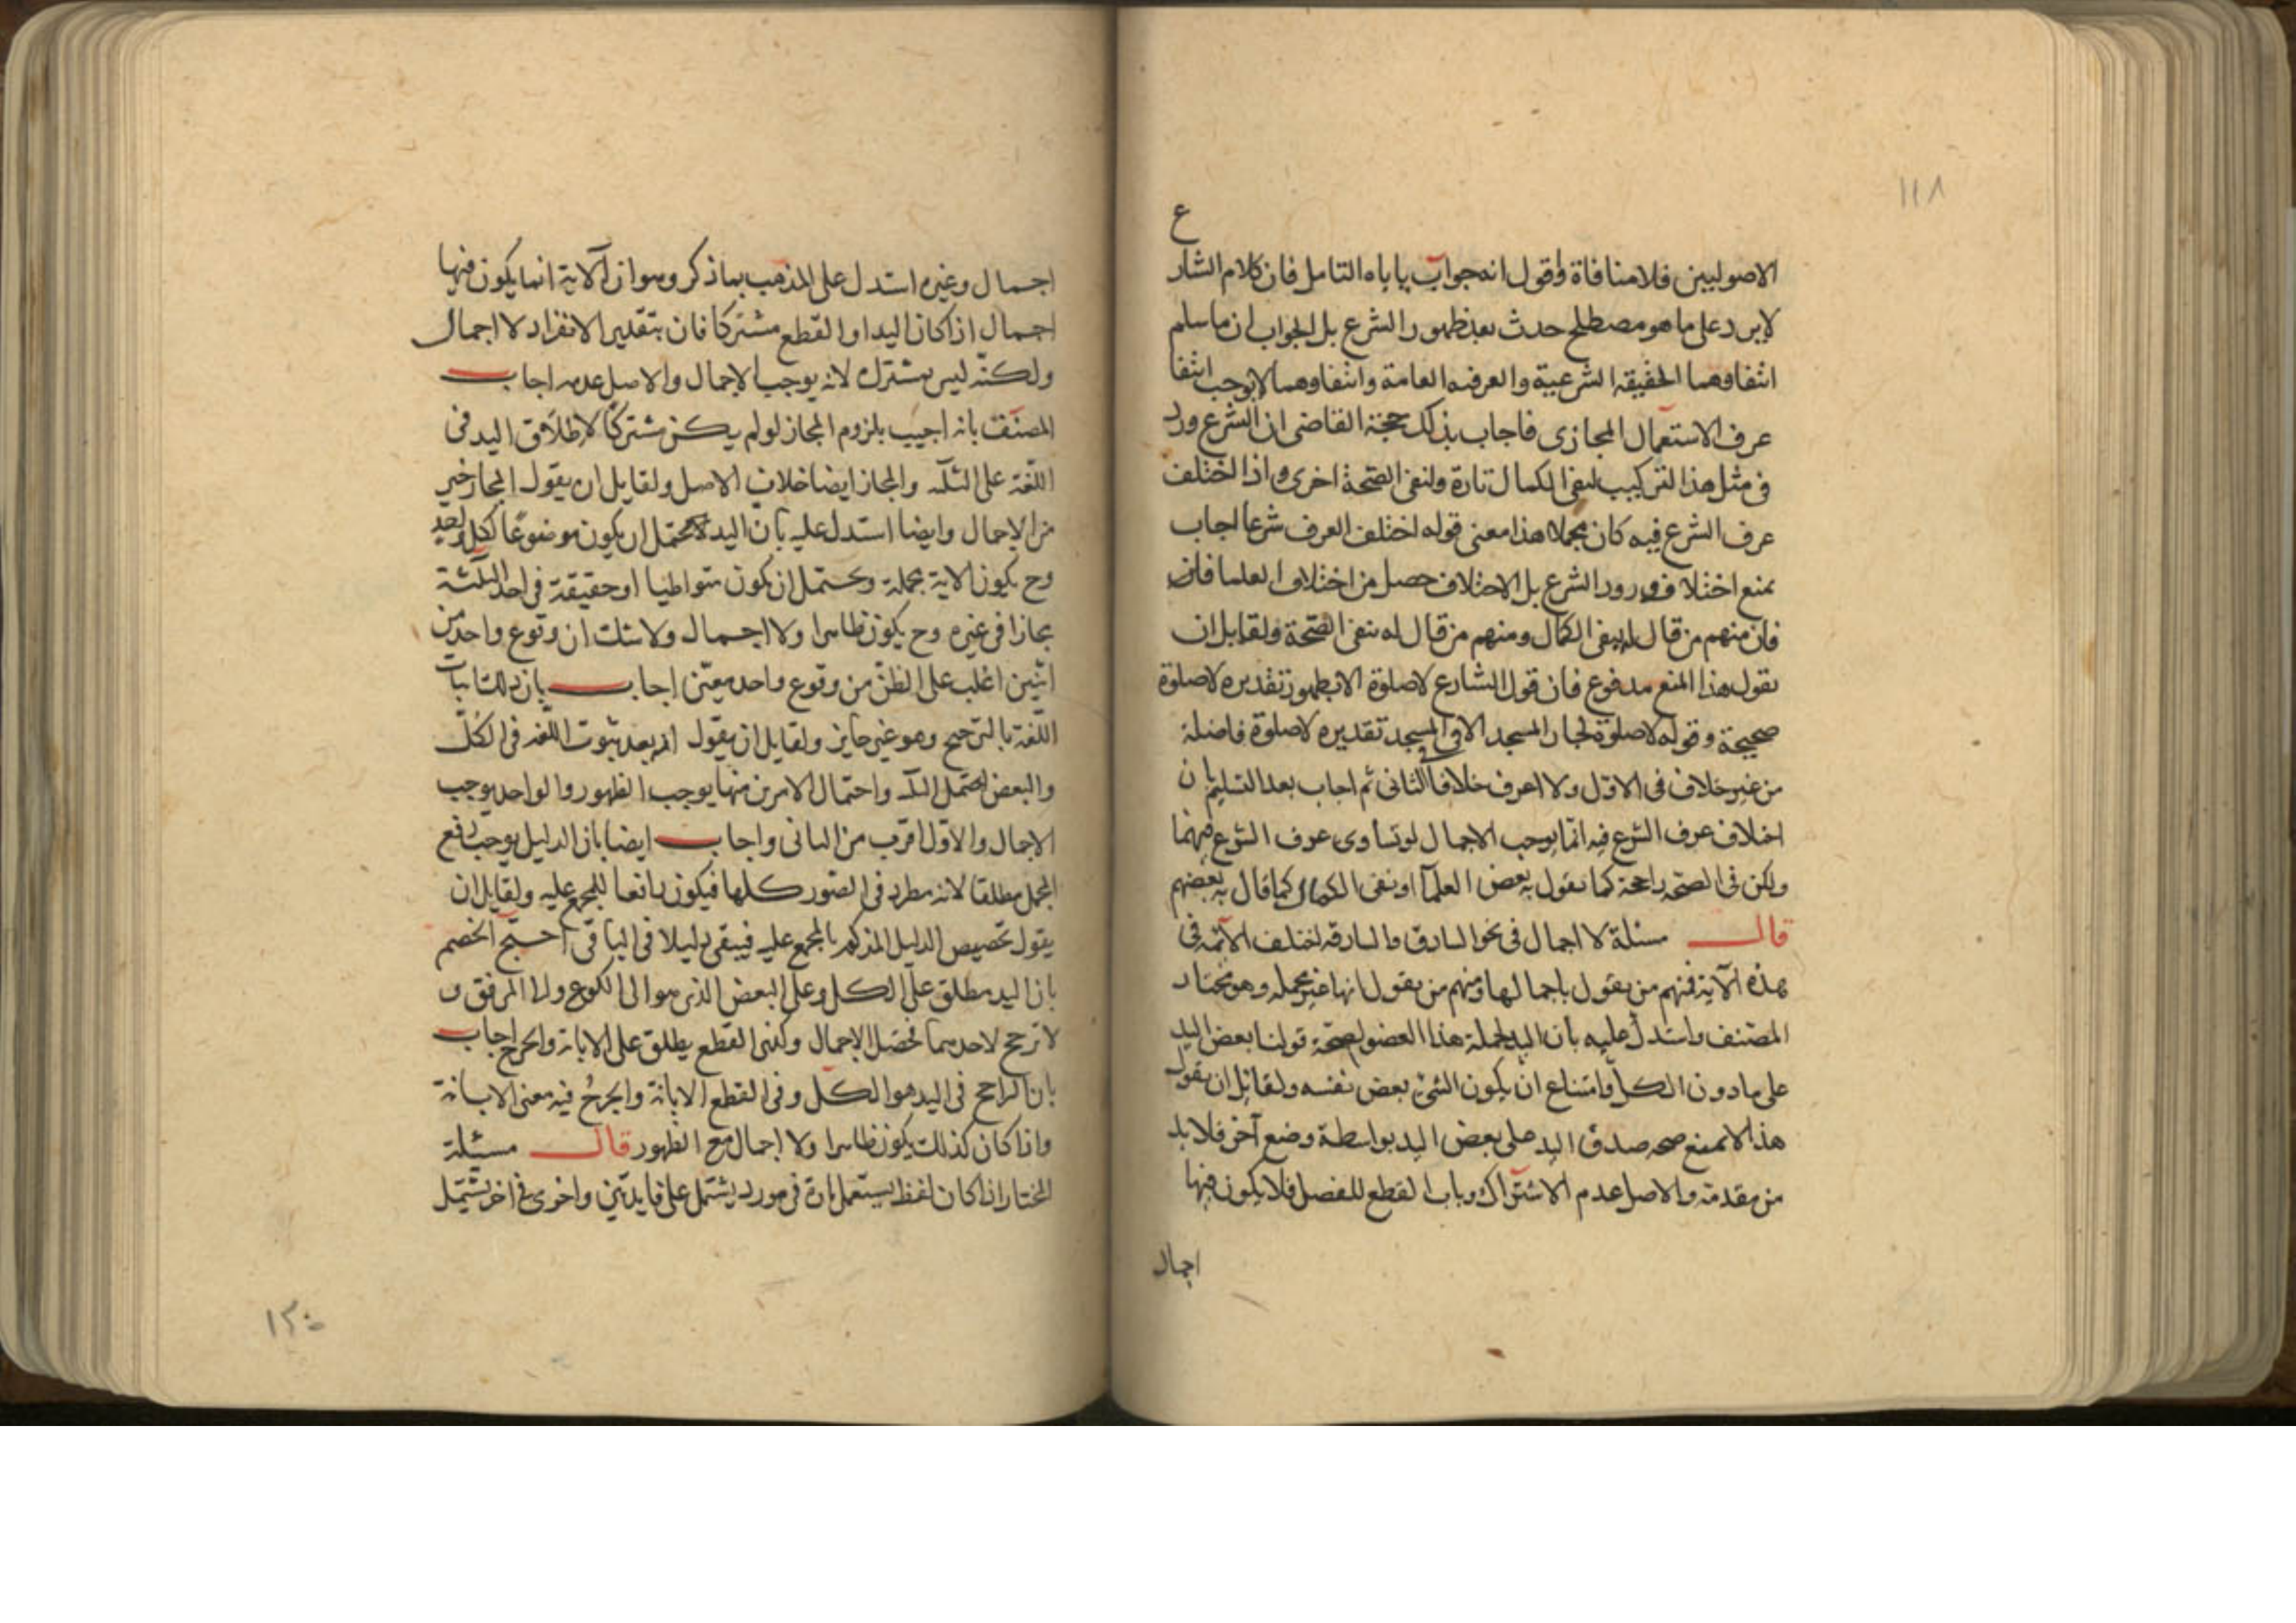 ١١٨
ع
الاصوليين فلا منافاة واقول انه جواب ياباه التامل فان كلام الشار
لا يرد على ما هو مصطلح حدث بعد ظهور الشرع بل الجواب ان ما سلم
انتفاوهما الحقيقه الشرعية والعرفيه العامة وانتفاوهما لا يوجب انتفا
عرف الاستعمال المجازى فاجاب بذلك حجة القاضى ان الشرع ورد
فى مثل هذا التركيب لنفى الكمال تارة ولنفى الصحة اخرى واذا اختلف
عرف الشرع فيه كان مجملا هذا معنى قوله اختلف العرف شرعا اجاب
بمنع اختلاف ورود الشرع بل الاختلاف حصل من اختلاف العلما فان
فان منهم من قال انه ينفى الكمال ومنهم من قال انه ينفى الصحة ولقايل ان
يقول هذا المنع مدفوع فان قول الشارع لا صلوة الا بطهور تقديره لا صلوة
صحيحة وقوله لا صلوة لجار المسجد الا فى المسجد تقديره لا صلوة فاضلة
من غير خلاف فى الاول ولا اعرف خلافا فى الثانى ثم اجاب بعد التسليم بان
اختلاف عرف الشرع فيه انما يوجب الاجمال لو تساوى عرف الشرع فيهما
ولكن فى الصحه راجحة كما يقول به بعض العلمآ او نفى الكمال كما قال به بعضهم
قال مسئلة لا اجمال فى نحو السارق والسارقه اختلف الائمه فى
هذه الآية فمنهم من يقول باجمالها ومنهم من يقول انها غير مجمله وهو مختار
المصنف واستدل عليه بان اليد لجملة هذا العضو لصحة قولنا بعض اليد
على ما دون الكل وامتناع ان يكون الشئ بعض نفسه ولقائل ان يقول
هذا لا يمنع صحه صدق اليد على بعض اليد بواسطة وضع آخر فلا بد
من مقدمة والاصل عدم الاشتراك وبان القطع للفصل فلا يكون فيها
اجمال
اجمال وغيره استدل على المذهب بما ذكر وهو ان الآية انما يكون فيها
اجمال اذا كان اليد او القطع مشتركا فان بتقدير الانفراد لا اجمال
ولكنه ليس بمشترك لانه يوجب الاجمال والاصل عدمه اجاب
المصنف بانه اجيب بلزوم المجاز لو لم يكن مشتركا لاطلاق اليد فى
اللغة على الثلثه والمجاز ايضا خلاف الاصل ولقايل ان يقول المجاز خير
من الاجمال وايضا استدل عليه بان اليد يحتمل ان يكون موضوعا لكل واحد
وح يكون الاية مجملة ويحتمل ان يكون متواطيا او حقيقة فى احد الثلثة
مجازا فى غيره وح يكون ظاهرا ولا اجمال ولا شك ان وقوع واحد من
اثنين اغلب على الظن من وقوع واحد معين اجاب بان ذلك اثبات
اللغة بالترجيح وهو غير جايز ولقايل ان يقول انه بعد ثبوت اللغه فى الكل
والبعض يحتمل واحتمال الامرين منها يوجب الظهور والواحد يوجب
الاجمال والاول اقرب من الثانى واجاب ايضا بان الدليل يوجب رفع
المجمل مطلقا لانه مطرد فى الصور كلها فيكون دافعا للمجمع عليه ولقايل ان
يقول تخصيص الدليل المذكور بالمجمع عليه فيبقى دليلا فى الباقى احتج الخصم
بان اليد مطلق على الكل وعلى البعض الذى هو الى الكوع ولا المرفق و
لا ترجح لاحدهما فحصل الاجمال وكذى القطع يطلق على الابانة والجرح اجاب
بان الراجح فى اليد هو الكل وفى القطع الابانة والجرح فيه معنى الابانة
واذا كان كذلك يكون ظاهرا ولا اجمال مع الظهور قال مسئلة
المختار اذا كان لفظ يستعمل تارة فى مورد يشتمل على فايدتين واخرى فى اخر يشتمل
١٢٠